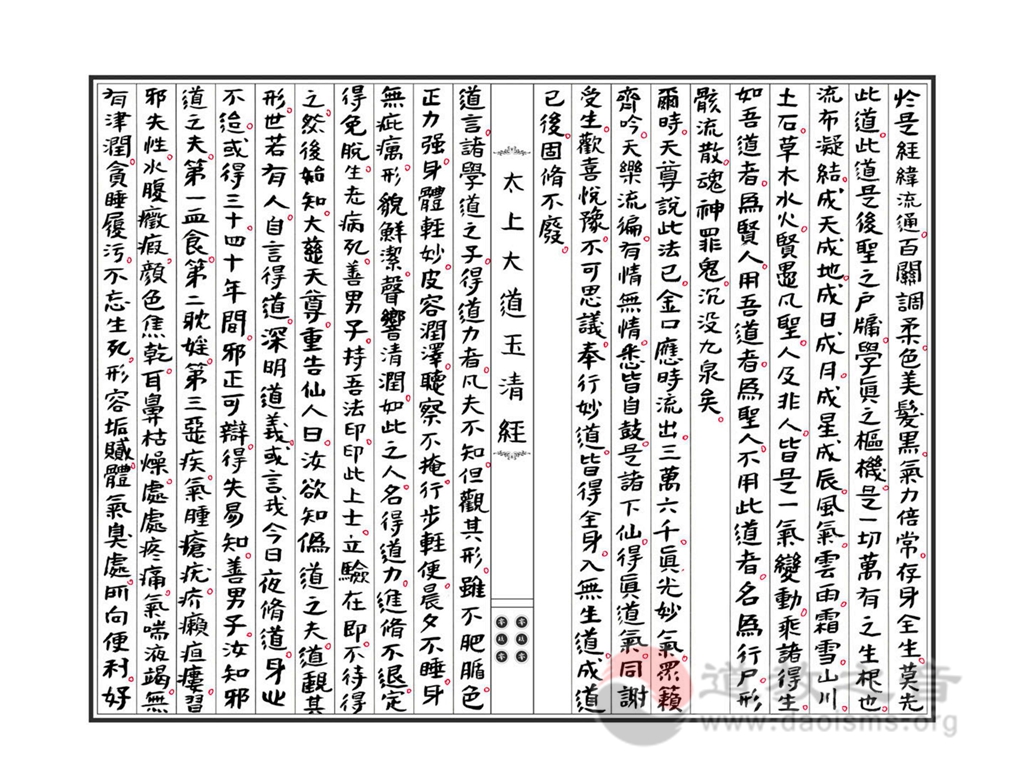 於是経緯流通。百關調柔。色美髮黒。氣力倍常。存身全生。莫先
此道。此道是後聖之戶牖。學真之樞機。是一切萬有之生根也。
流布凝結。成天成地。成日成月。成星成辰。風氣雲雨。霜雪山川。
土石草木水火。賢愚凡聖。人及非人。皆是一氣變動。乘諸得生。
如吾道者。爲賢人。用吾道者。爲聖人。不用此道者。名爲行尸。形
骸流散。魂神罪鬼。沉没九泉矣。
爾時。天尊說此法已。金口應時流出。三萬六千。真光妙氣。眾籟
齊吟。天樂流徧。有情無情。悉皆自鼓。是諸下仙。得真道氣。同謝
受生。歡喜悅豫。不可思議。奉行妙道。皆得全身。入無生道。成道
已後。固脩不廢。
太上大道玉清経
道言。諸學道之子。得道力者。凡夫不知。但觀其形。雖不肥腯。色
正力强。身體輕妙。皮容潤澤。聽察不掩。行步輕便。晨夕不睡。身
無疵癘。形貌鮮潔。聲響清潤。如此之人。名得道力。進脩不退。定
得免脫。生老病死。善男子。持吾法印。印此上士。立驗在即。不待得
之。然後始知。大慈天尊。重告仙人曰。汝欲知僞道之夫。道觀其
形。世若有人。自言得道。深明道義。或言我今日夜脩道。身止
不追。或得三十四十年間。邪正可辯。得失易知。善男子。汝知邪
道之夫。第一血食。第二耽婬。第三惡疾。氣腫瘡疣。疥癩疽瘻。習
邪失性。水腹癥瘕。顏色焦乾。耳鼻枯燥。處處疼痛。氣喘液竭。無
有津潤。貪睡履污。不忘生死。形容垢膩。體氣臭處。所向便利。好
道教之音
www.daoisms.org